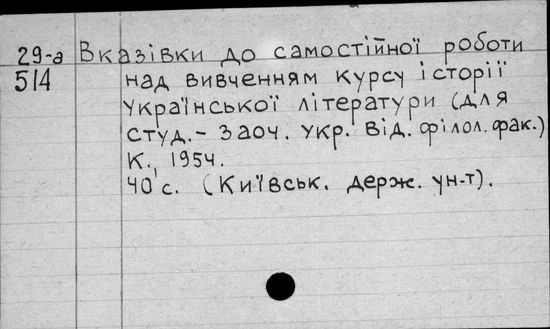 29-а Вказівки до самостійної роботи
514 над вивченням курсу історії
української літератури (для
студ.- заоч. укр. від. філол. фак.)
К., 1954.
40 с. (Київськ. держ. ун-т).